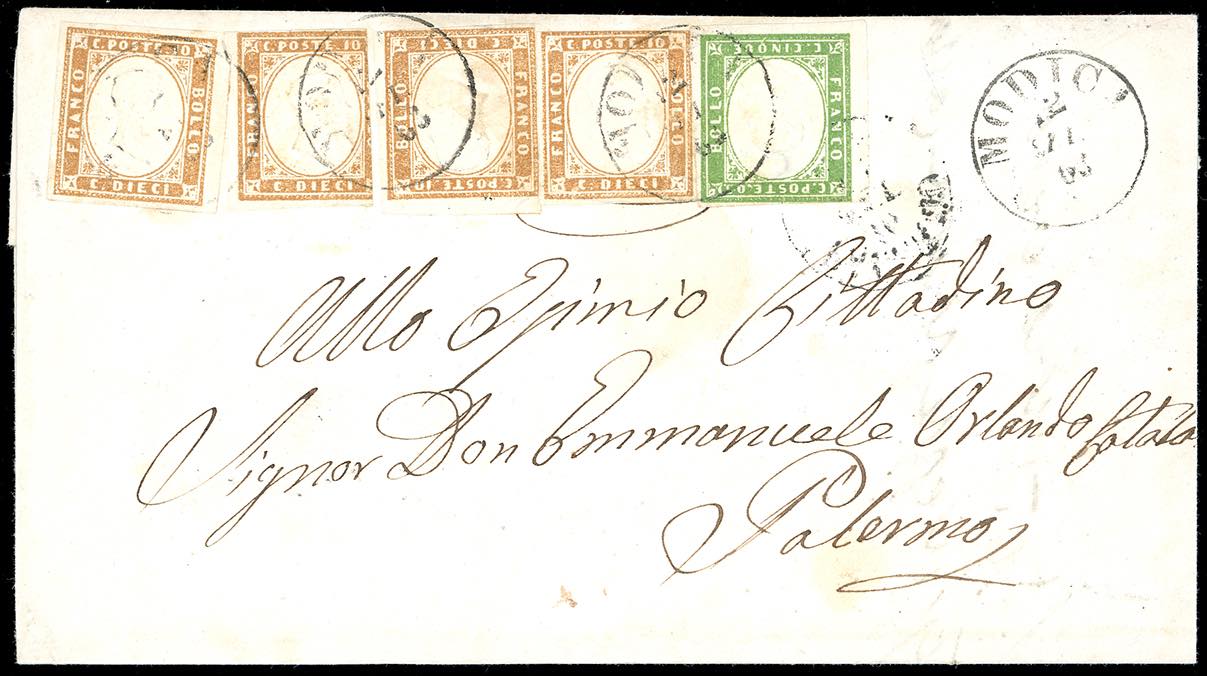 C. POSTE 10 FRANCO BOLLO C. DIECI
C. POSTE 10 FRANCO C. DIECI
C. DIECI BOLLO FRANCO C. POSTE 10
C. POSTE 10 FRANCO BOLLO C. DIECI
C. CINQUE BOLLO FRANCO C. POSTE 05
MODICA
2
63
Allo Esimio Cittadino
Signor Don Emmanuele Orlando
Palermo